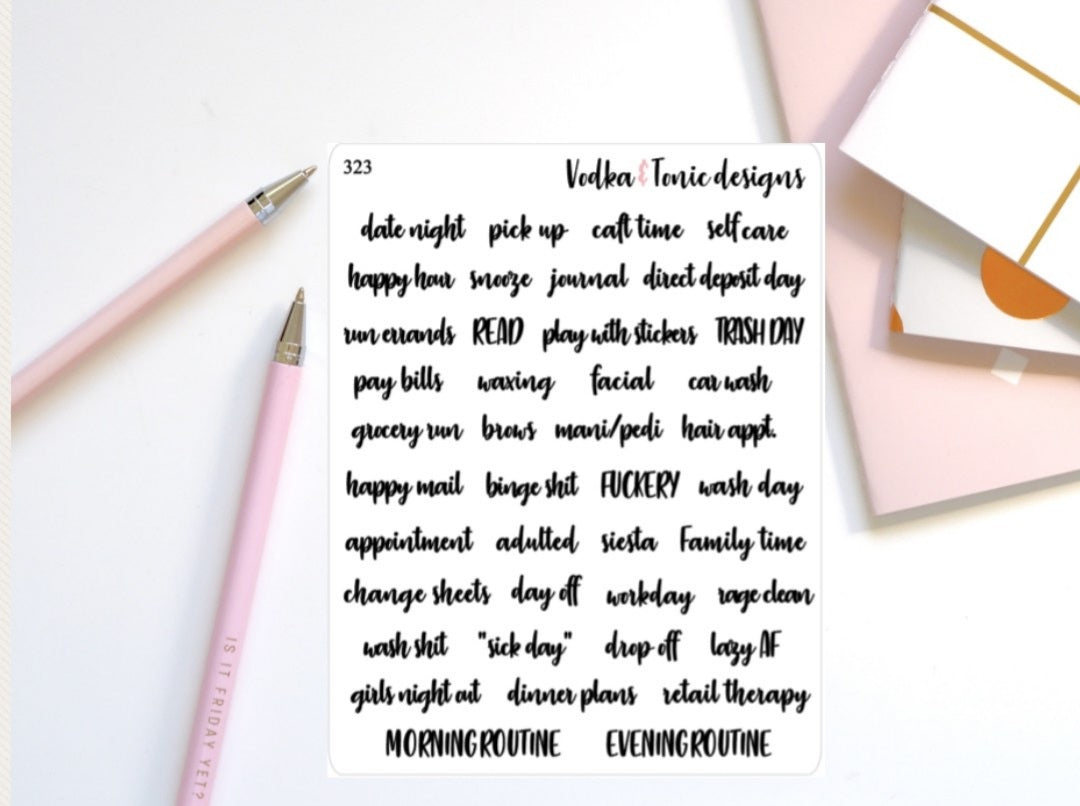 323
Vodka & Tonic designs
date night pick up caft time self care
happy hour snooze journal direct deposit day
run errands READ play with stickers TRASH DAY
pay bills waxing facial car wash
grocery run brows mani/pedi hair appt.
happy mail binge shit FUCKERY wash day
appointment adulted siesta Family time
change sheets day off workday rage clean
wash shit "sick day" drop off lazy AF
girls night out dinner plans retail therapy
MORNING ROUTINE EVENING ROUTINE
IS IT FRIDAY YET?